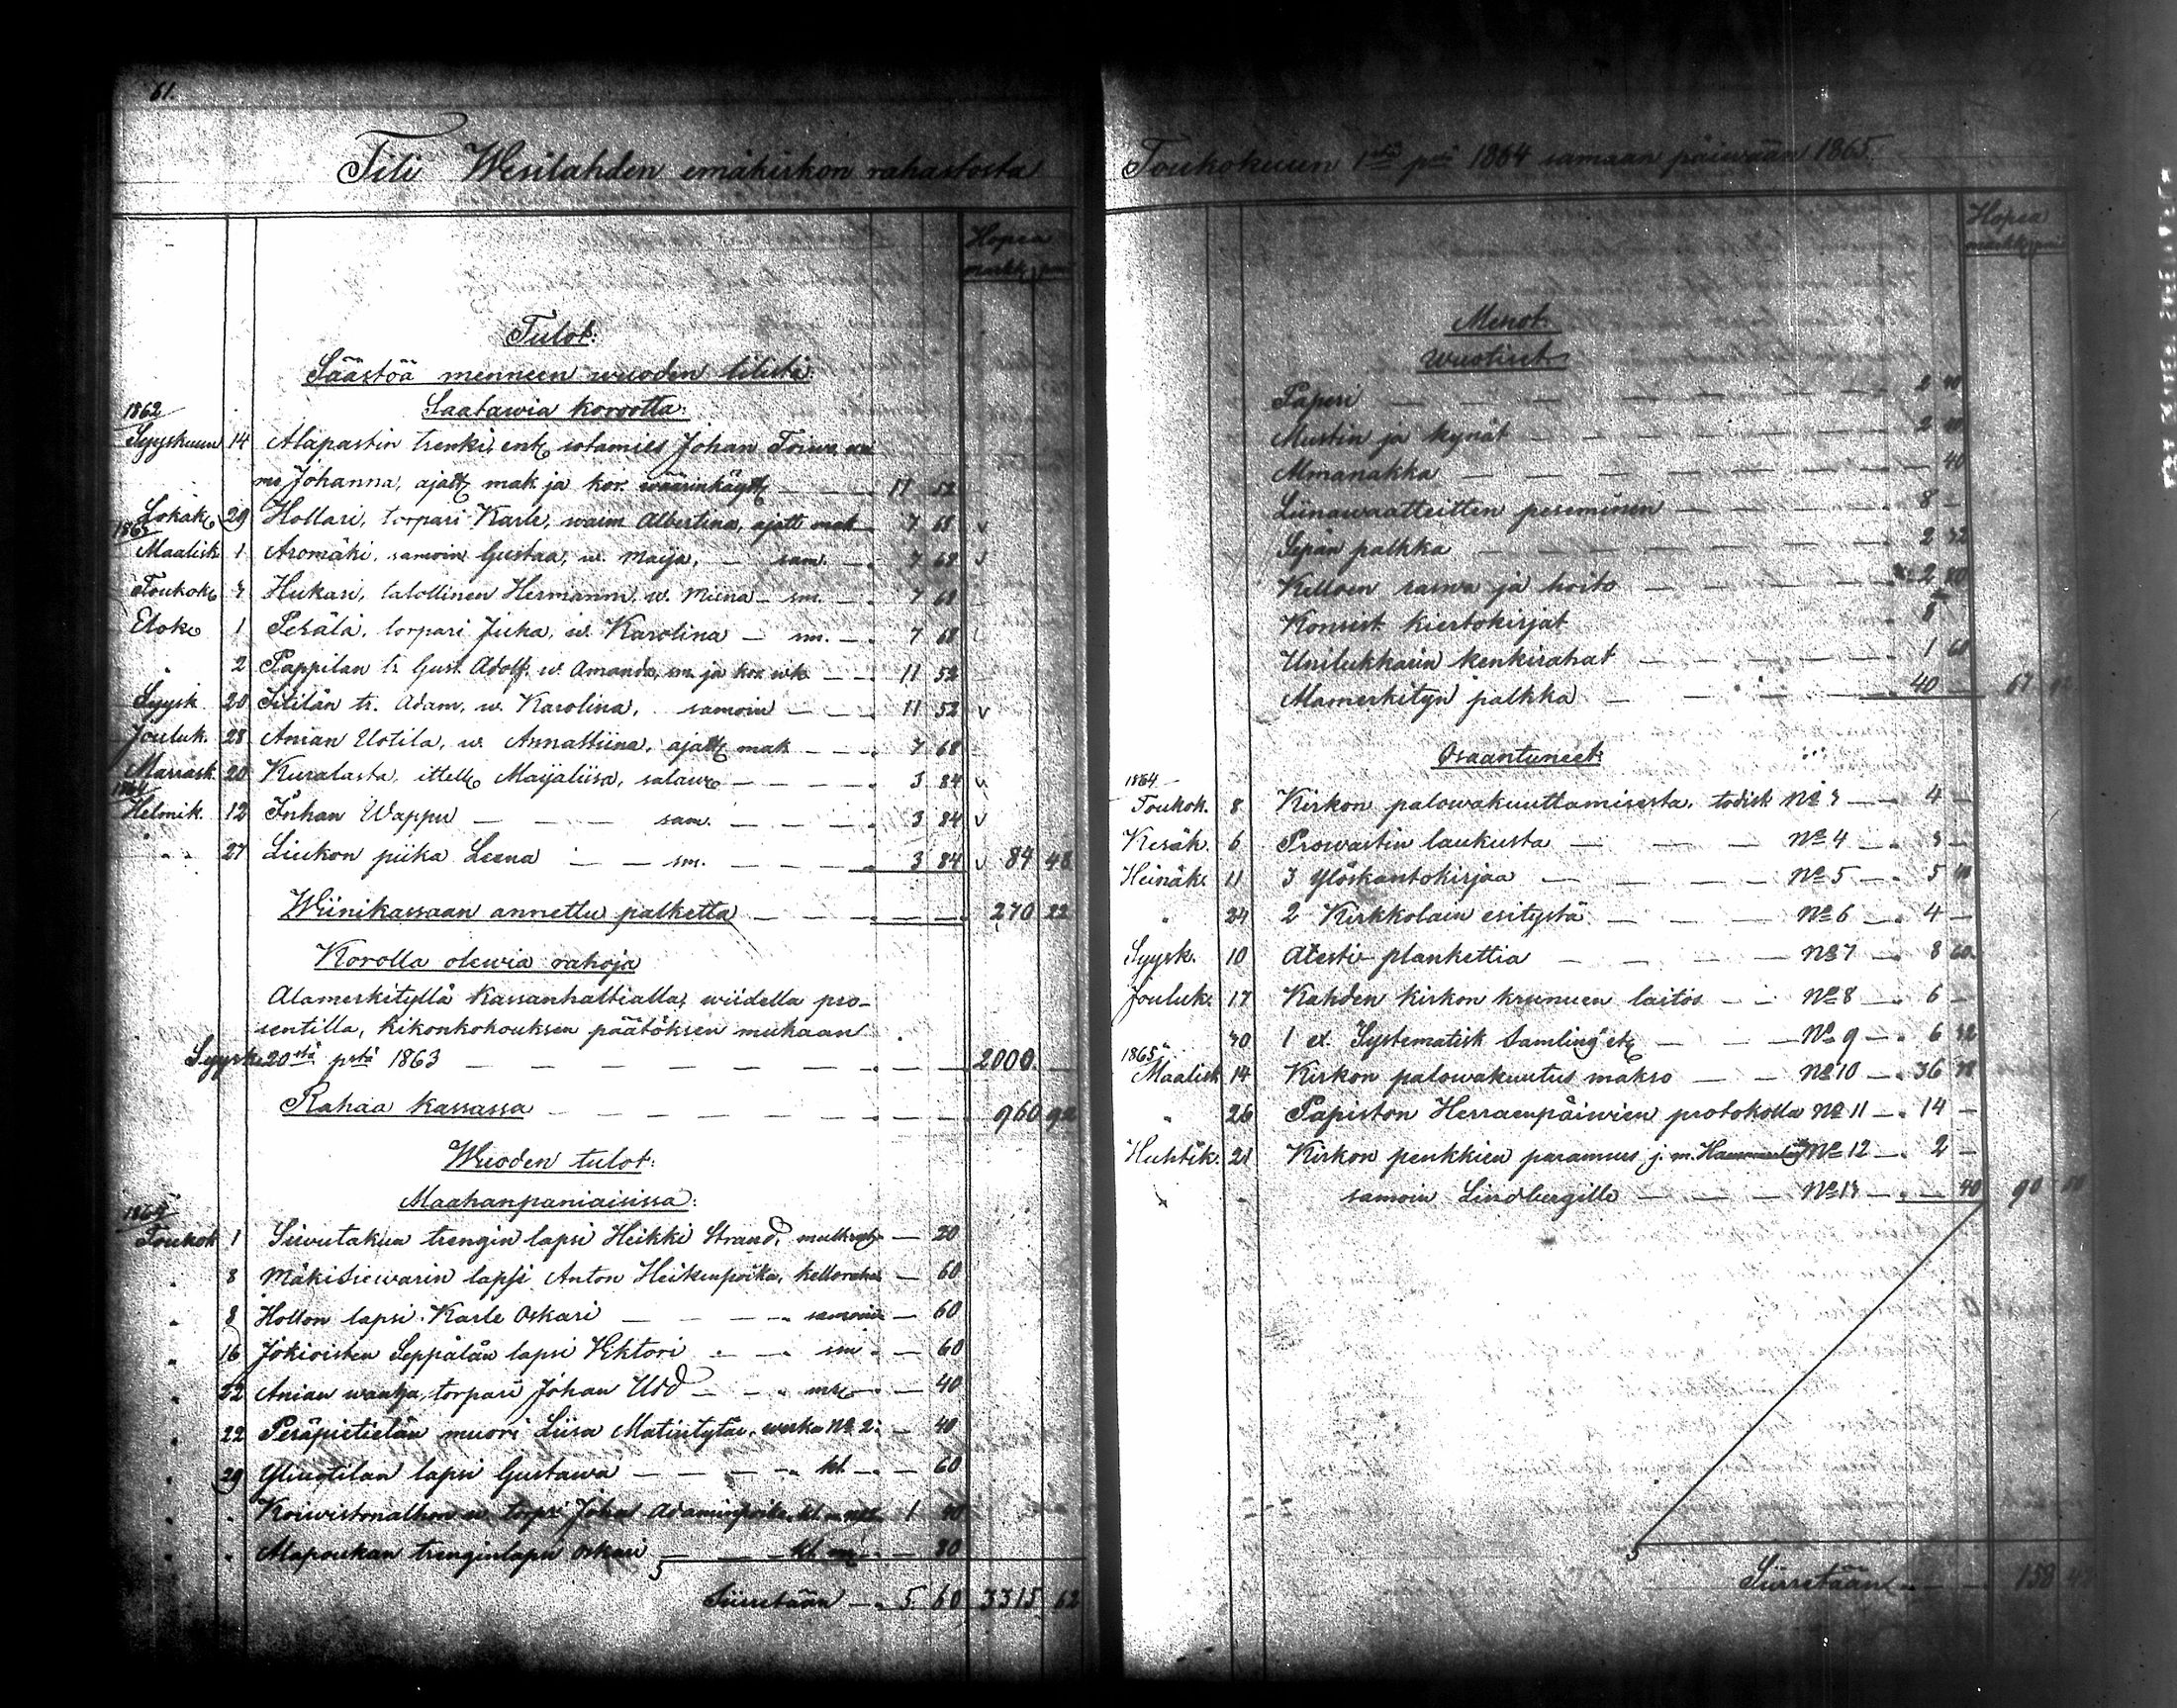 61.
Tili Wesilahden emäkirkon rahastosta
Hopea
markk. pen.
Tulot:
Säästöä menneen wuoden tilistä:
Saatawia korootta:
1862
Syyskuun 14 Alapastin trenki, ent. sotamies Johan Toiwe wai
mo Johanna, ajatt. mak. ja kor. wäärinkäytt. — 11 52
Lokak. 29 Hollari, torpari Karle, waim Albertina, ajatt mak — 7 68 v
1863
Maalisk 1 Aromäki, samoin Gustaa, w. Maija, — sam. — 7 68 v
Toukok. 3 Hukari, talollinen Hermanni, w. Miina — sm. — 7 68
Elok. 1 Perälä, torpari Juha, w. Karolina — sm. — 7 68
" 2 Pappilan tr. Gust. Adolf, w. Amanda, sm. ja kor. wk. — 11 52
Syysk. 20 tr. Adam, w. Karolina, samoin — 11 52 v
Jouluk. 28 Anian Uotila, w. Annastiina, ajatt. mak — 7 68
Marrask. 20 Kuralasta, ittell. Maijaliisa, salawuo — 3 84 v
1864
Helmik. 12 Inhan Wappu — sam. — 3 84 v
" 27 Liukon piika Leena — sm. — 3 84 v 84 48
Wiinikassaan annettu palketta — 270 22
Korolla olewia rahoja
Alamerkityllä Kassanhaltialla, wiidellä pro-
sentilla, kikonkohouksen päätöksen mukaan
Syysk. 20stä pstä 1863 — 2000. —
Rahaa kassassa — 960 92
Wuoden tulot:
Maahanpaniaisissa:
1864
Toukok 1 Siwutakua trengin lapsi Heikki Strand, — 20
" 8 Mäkisiewarin lapsi Anton Heikinpoika, kelloraha — 60
" 8 Hollon lapsi Karle Oskari — samoin — 60
" 16 Jokioisten Seppälän lapsi Wiktori — sm — 60
" 22 Anian waahja, torpari Johan Udd — — 40
" 22 Peräpietilän muori Liisa Matintytär, werka No 2: — 40
" 29 Yliuotilan lapsi Gustawa — kl. — 60
" " Koiwistonalhon w. torp. Johan Adaminpoika, kl. — 1 40
" " Alapoukan trenginlapsi Oskari — kl. — 80
Siirretään — 5. 60 3315 62
Toukokuun 1stä pstä 1864 samaan päiwään 1865.
Hopea
markk. pen.
Menot.
Wuotiset
Paperi — 2 40
Mustin ja kynät — 2 40
Almanakka — 40
Liinawaatteitten peseminen — 8 —
Sepän palkka — 2 32
Kelloin raswa ja hoito — 2 80
Konsist. kiertokirjat 8
Unilukkarin kenkirahat — 1 60
Mamerkityn palkka — 40 — 67
Osaantuneet:
1864
Toukok. 8 Kirkon palowakuuttamisesta, todist No 3 — 4 —
Kesäk. 6 Prowastin laukusta — No 4 — 3 —
Heinäk. 11 3 Ylöskantokirjaa — No 5 — 5
" 24 2 Kirkkolain esitystä — No 6 — 4 —
Syysk. 10 Atesti-plankettia — No 7 — 8 60
Jouluk. 17 Kahden kirkon krunuen laitos — No 8 — 6 —
" 30 1 ex. Systematisk Samling etc. — No 9 — 6 32
1865
Maalisk 14 Kirkon palowakuutus makso — No 10 — 36
" 26 Papiston Herraenpäiwien protokolla No 11 — 14 —
Huhtik. 21 Kirkon penkkien parannus j. m. No 12 — 2 —
" samoin Lindbergille — No 13 — 40 90
Siirretään — 158